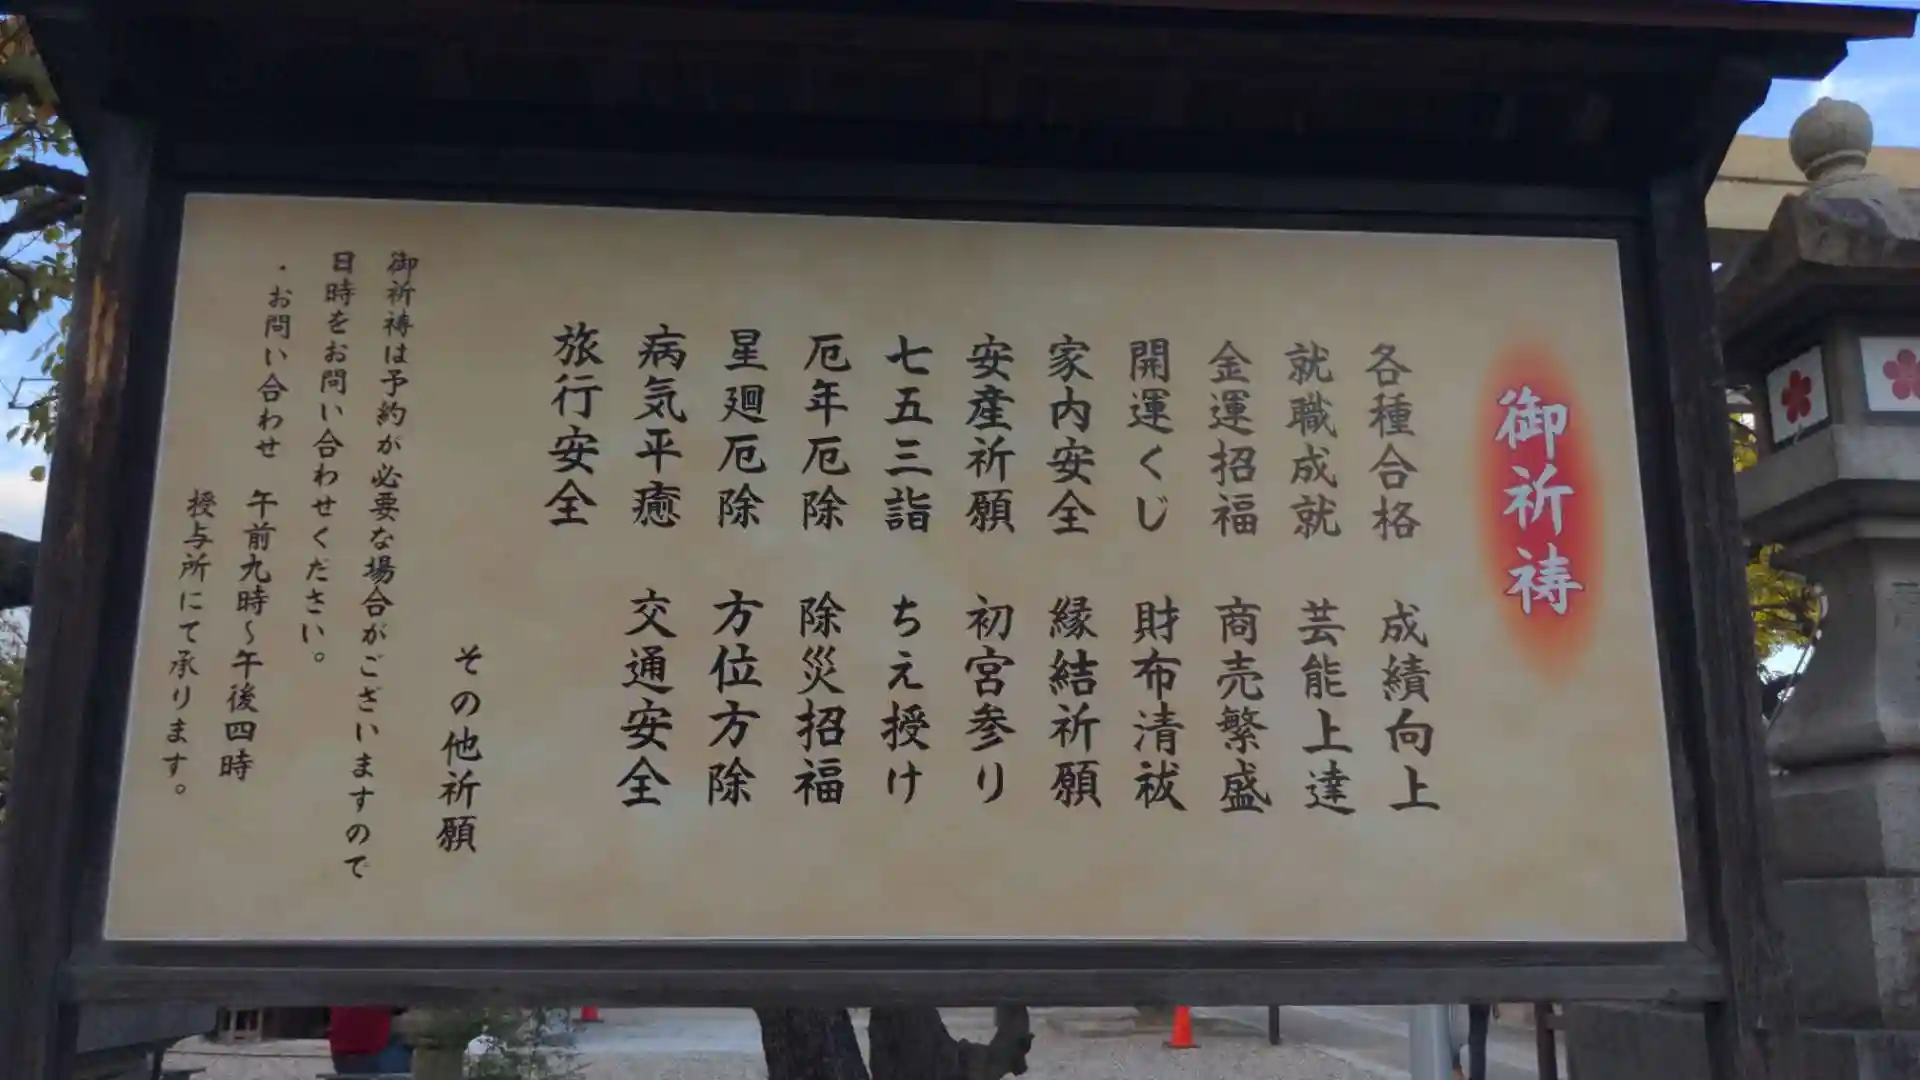 御祈祷
各種合格 成績向上
就職成就 芸能上達
金運招福 商売繁盛
開運くじ 財布清祓
家内安全 縁結祈願
安産祈願 初宮参り
七五三詣 ちえ授け
厄年厄除 除災招福
星廻厄除 方位方除
病気平癒 交通安全
旅行安全
その他祈願
御祈祷は予約が必要な場合がございますので
日時をお問い合わせください。
・お問い合わせ 午前九時~午後四時
授与所にて承ります。